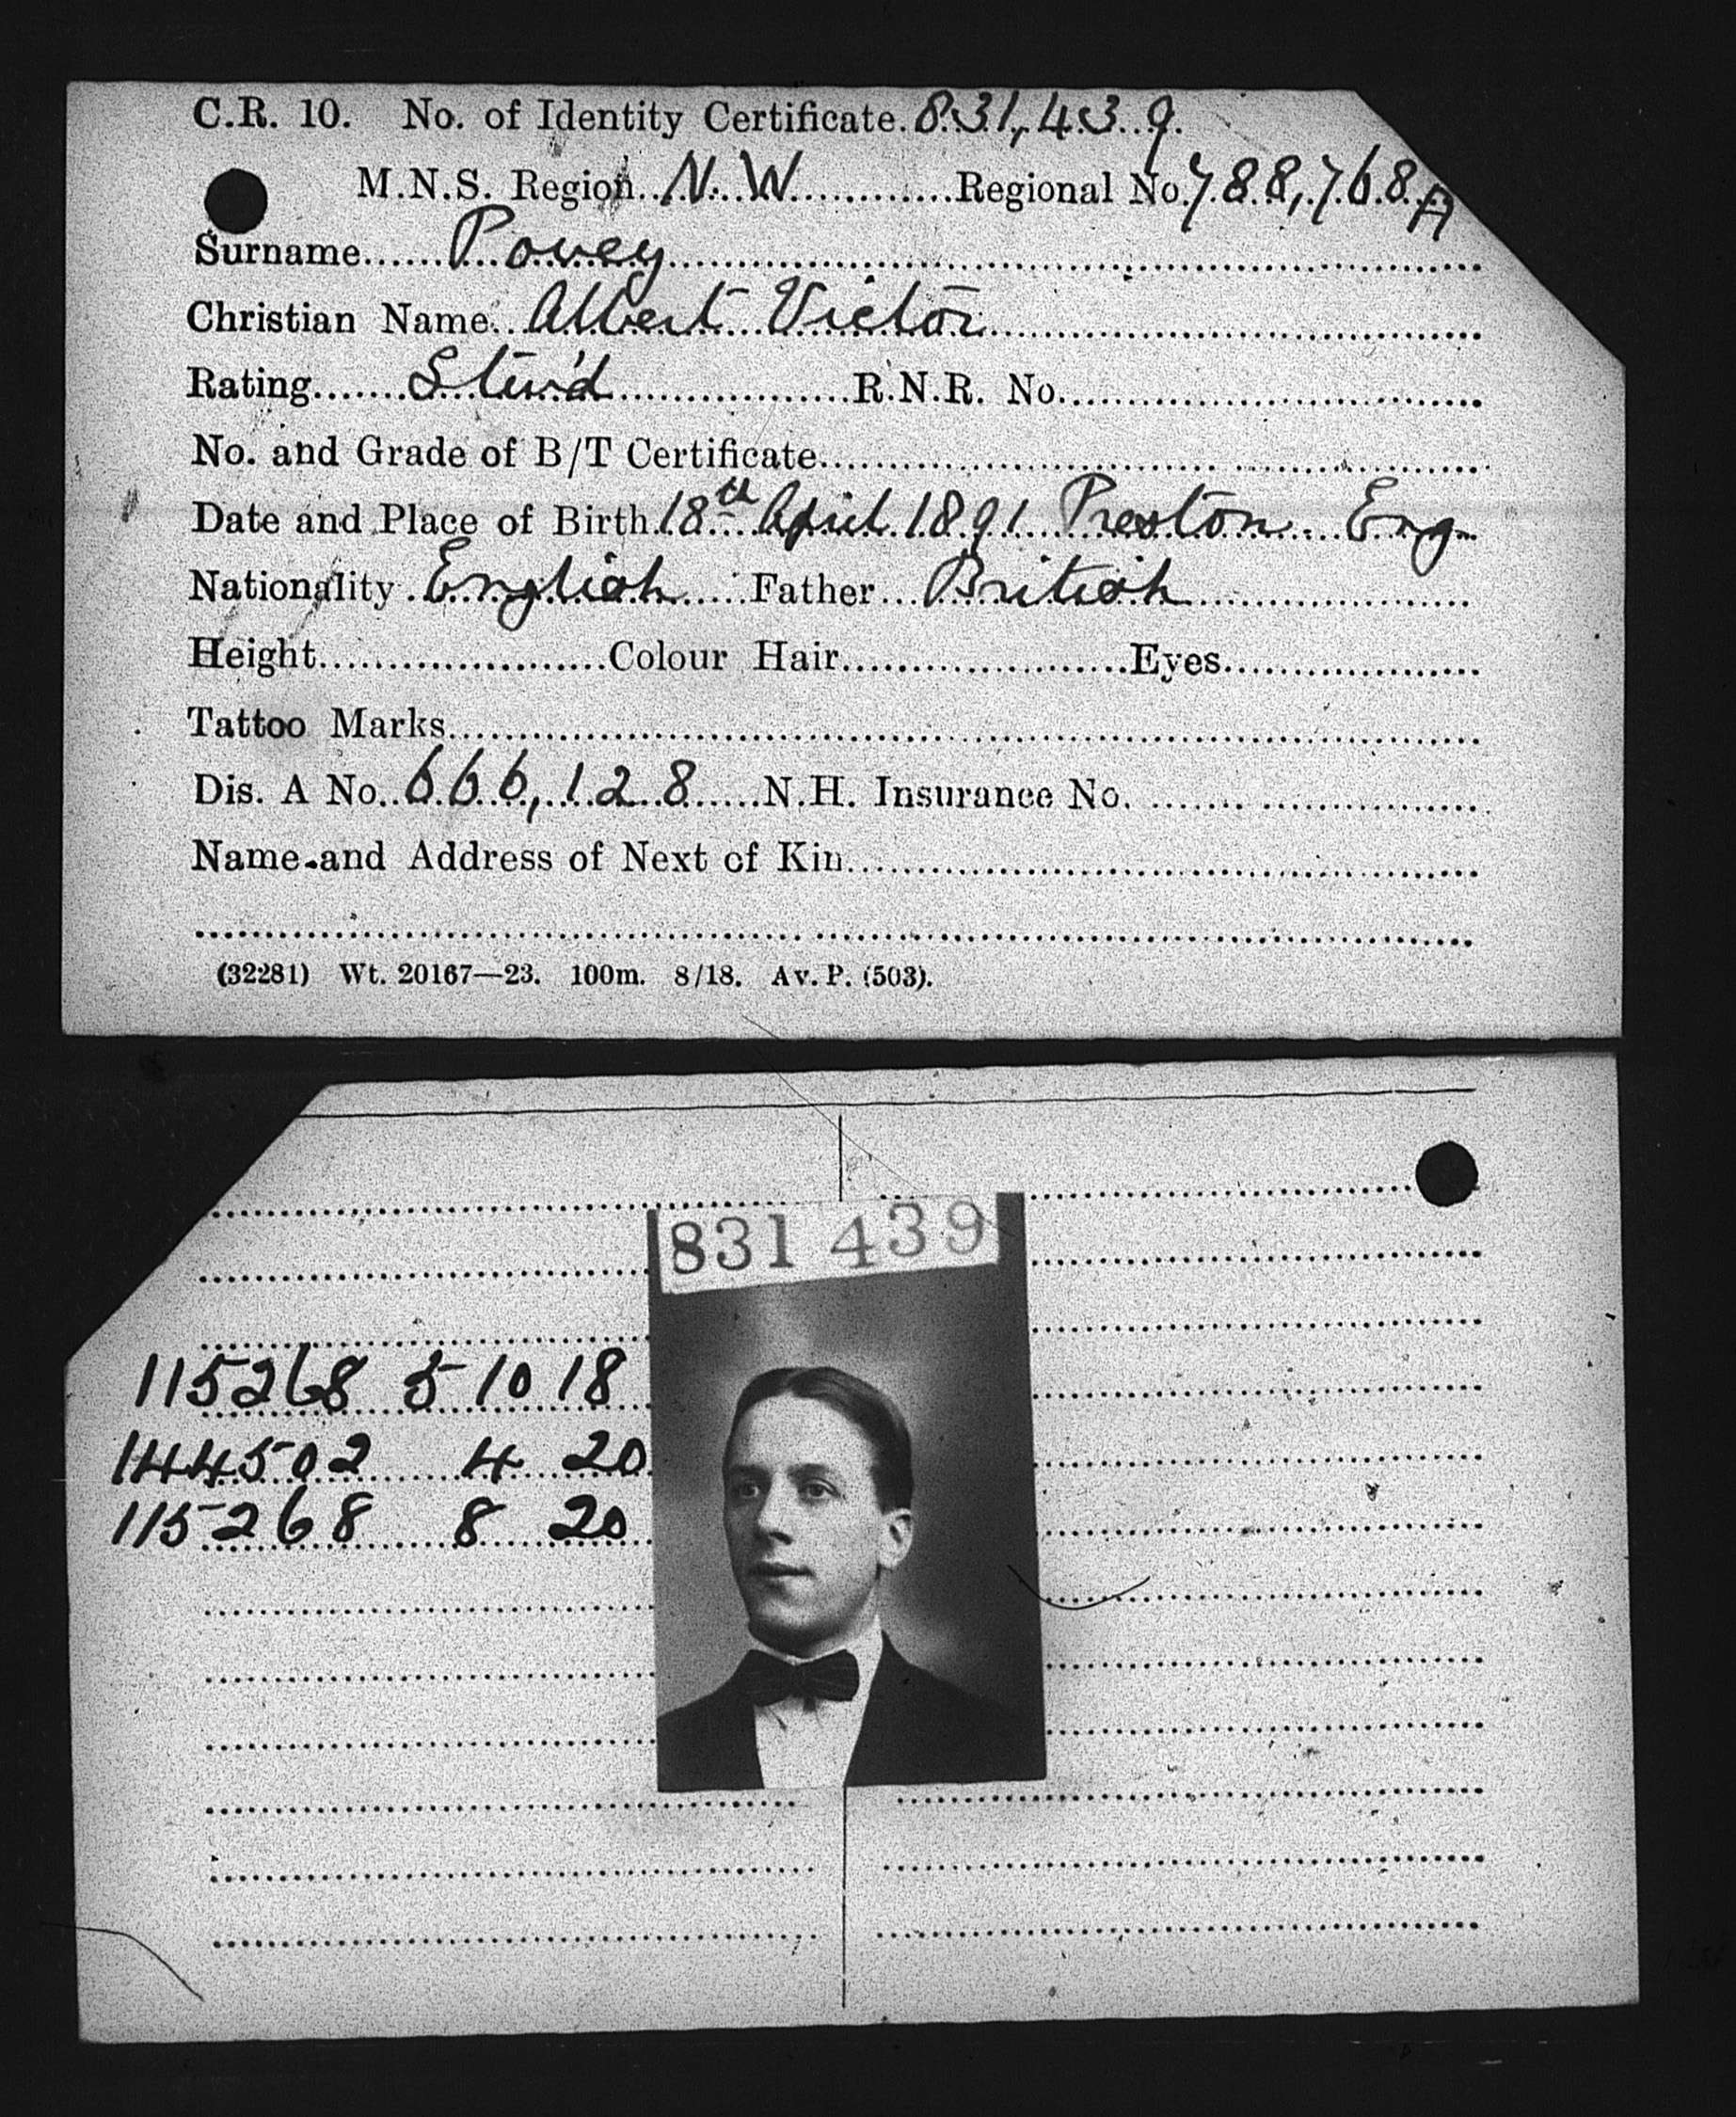 C.R. 10. No. of Identity Certificate. 831,439.
M.N.S. Region. N. W. Regional No. 788,768 A
Surname Povey
Christian Name Albert Victor
Rating Stew'd R.N.R. No.
No. and Grade of B/T Certificate
Date and Place of Birth 18th April 1891 Preston Eng.
Nationality English Father British
Height Colour Hair Eyes
Tattoo Marks
Dis. A No. 666,128 N.H. Insurance No.
Name and Address of Next of Kin
(32281) Wt. 20167—23. 100m. 8/18. Av. P. (503).
831 439
115268 5 10 18
144502 4 20
115268 8 20